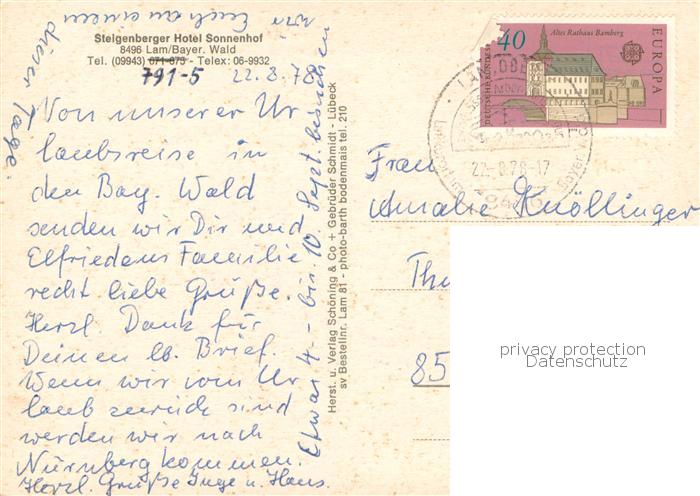 Steigenberger Hotel Sonnenhof
8496 Lam/Bayer. Wald
Tel. (09943) 671-673 - Telex: 06-9932
791-5
22.8.78
Von unserer Ur
laubsreise in
den Bay. Wald
senden wir Dir und
Elfriedens Familie
recht liebe Grüße.
Herzl. Dank für
Deinen lb. Brief.
Wenn wir vom Ur
laub zurück sind
werden wir nach
Nürnberg kommen.
Herzl. Grüße Inge u. Hans.
Etwas 4.- bis 10. Sept. besuchen
wir Euch an einem
dieser Tage.
Herst. u. Verlag Schöning & Co + Gebrüder Schmidt - Lübeck
sv Bestellnr. Lam 81 - photo-barth bodenmais tel. 210
40
Altes Rathaus Bamberg
DEUTSCHE BUNDESPOST
EUROPA
22.-8.78-17
Frau
Amalie Knöllinger
Thu
85
privacy protection
Datenschutz